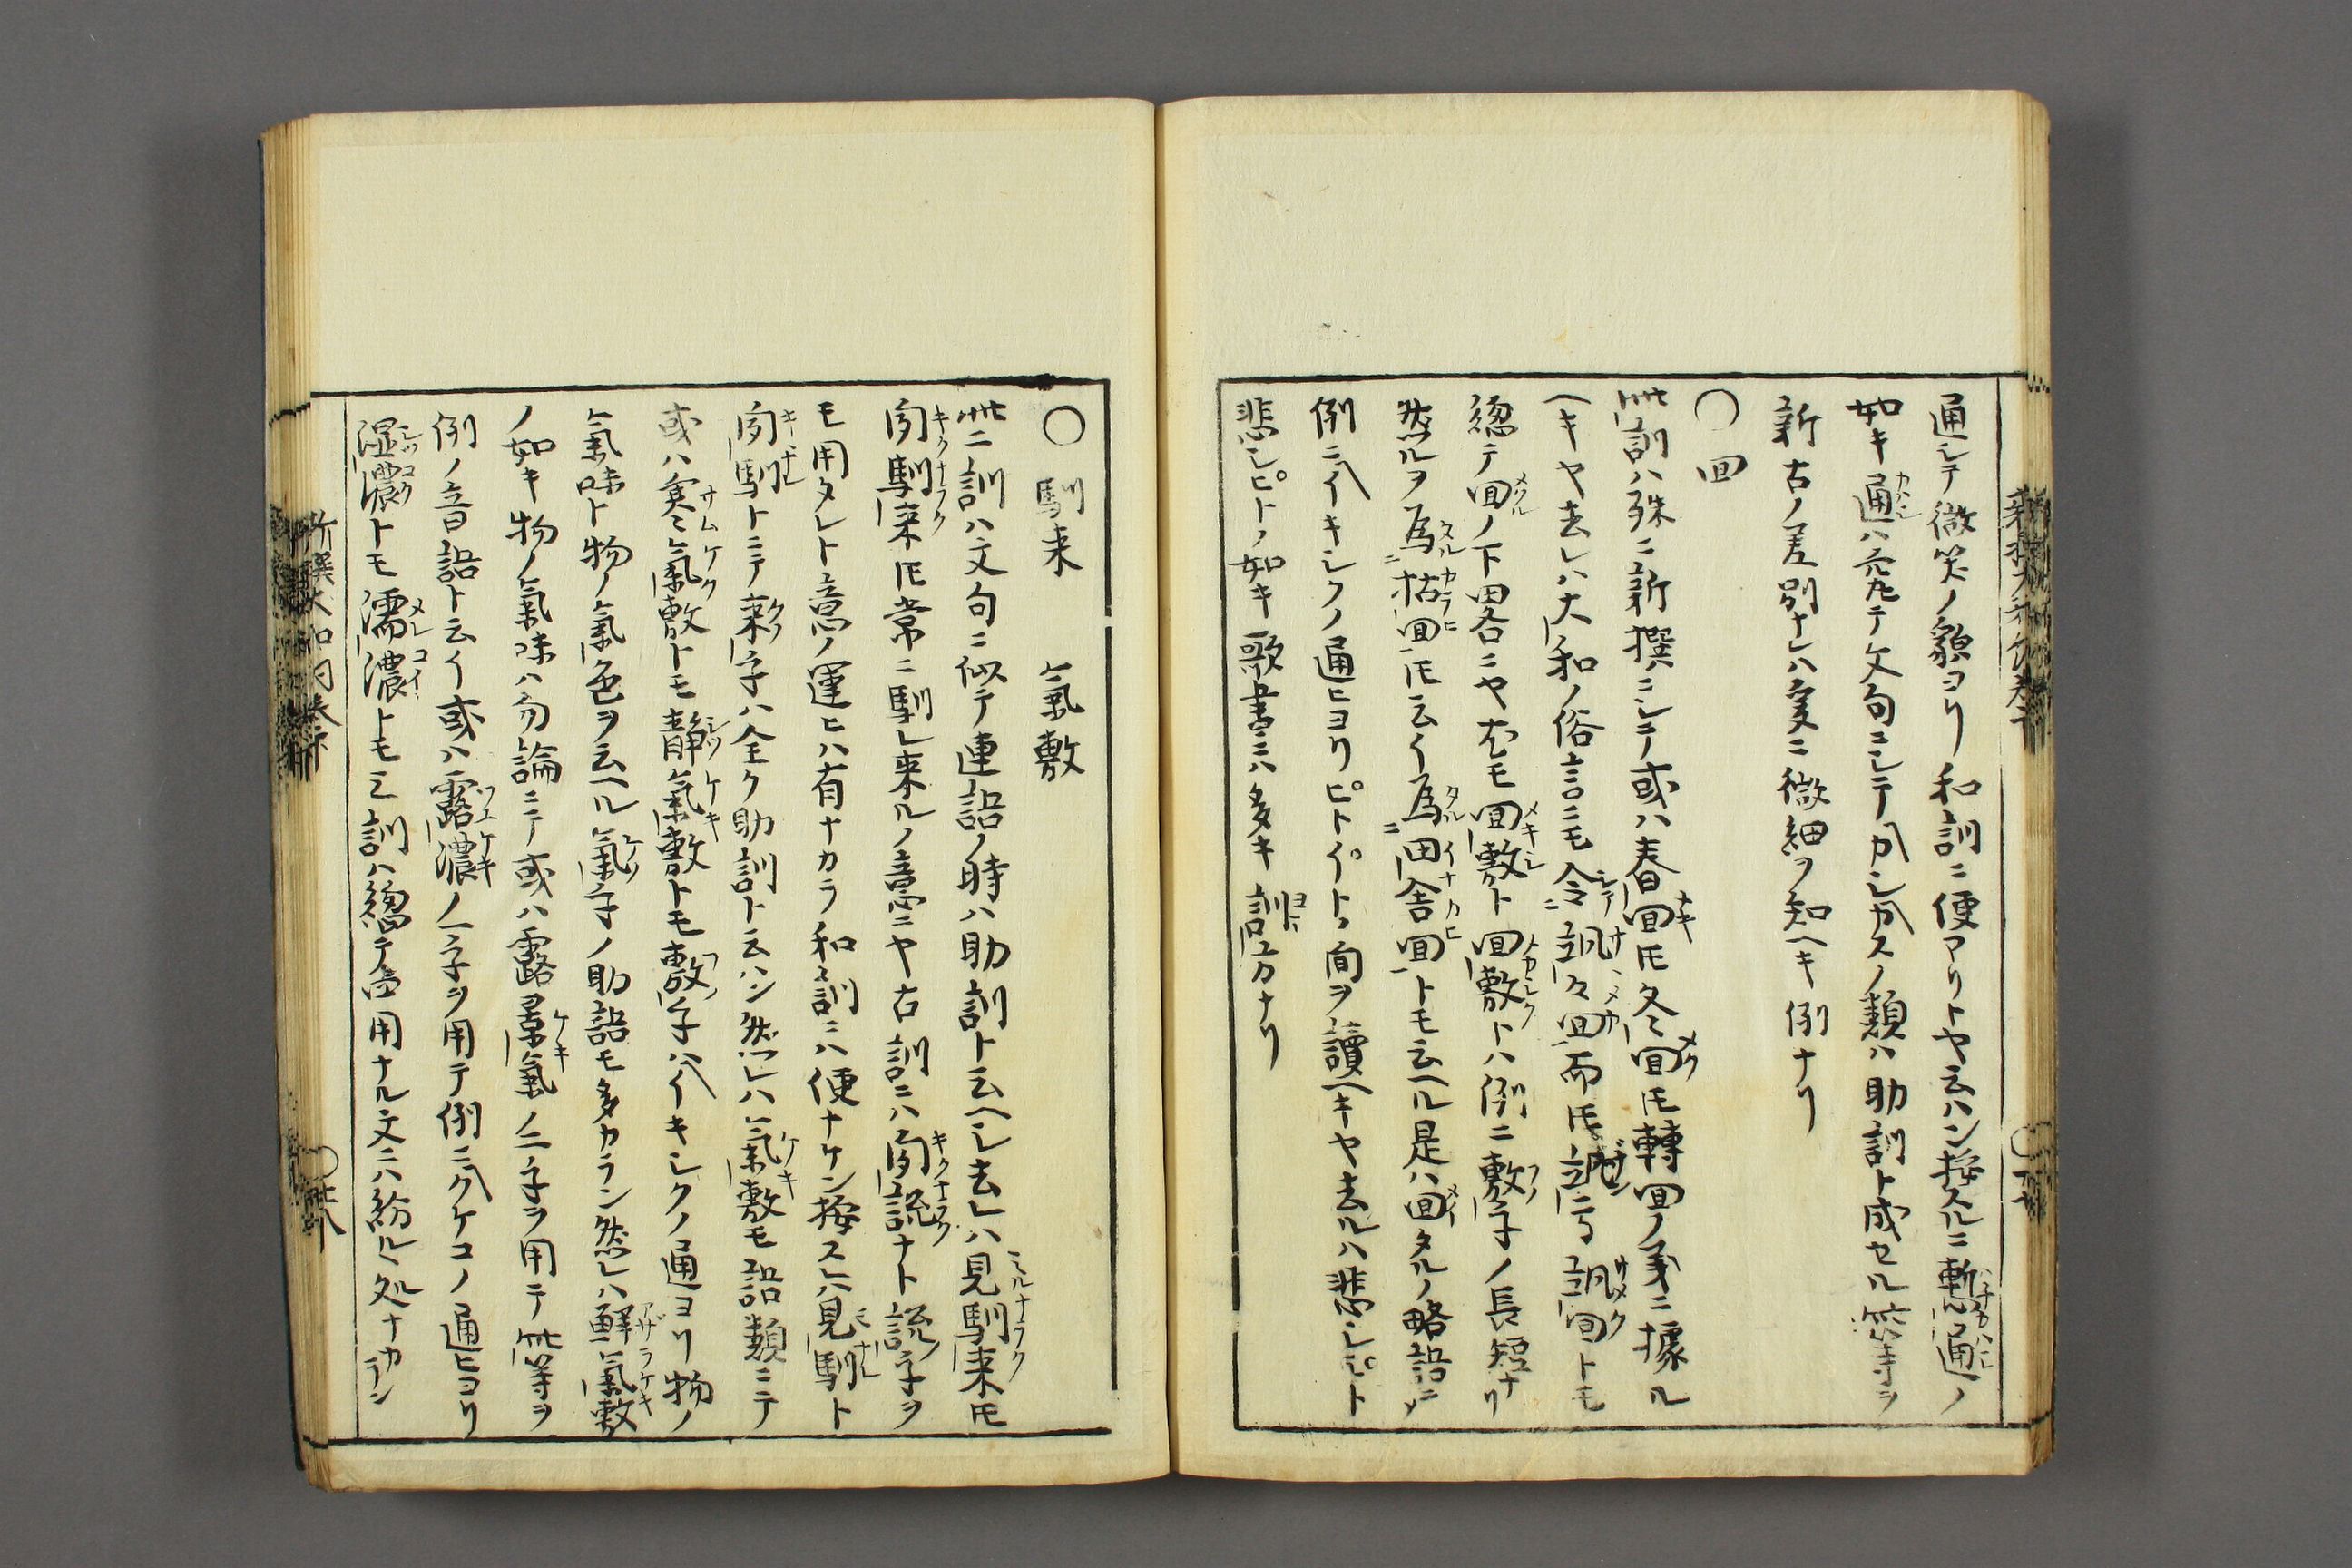 通シテ微笑ノ貌ヨリ和訓ニ便アリトヤ云ハン按スルニ慙通ノ
如キ通ハ究テ文句ニシテカシカスノ類ハ助訓ト成セル等ヲ
新古ノ差別ナレハ爰ニ微細ヲ知ヘキ例ナリ
○回
此訓ハ殊ニ新撰ニシテ或ハ春回氏冬回氏轉回ノ義ニ據ル
ヘキヤ去レハ大和ノ俗言ニモ令訊々回而氏訊回トモ
總テ回ノ下畧ニヤ尤モ回敷ト回敷トハ例ニ敷字ノ長短ナリ
然ルヲ為枯回氏云イ為田舎回トモ云ヘル是ハ回タルノ略語ニ
例ニイキシクノ通ヒヨリピトイトノ間ヲ讀ヘキヤ去ルハ悲シピト
悲シピトノ如キ歌書ニハ多キ訓方ナリ
○馴来 氣敷
此二訓ハ文句ニ似テ連語ノ時ハ助訓ト云ヘシ去レハ見馴来氏
聞馴来氏常ニ馴レ来ルノ意ニヤ古訓ニハ聞説ナト説字ヲ
モ用タレト意ノ運ヒハ有ナカラ和訓ニハ便ナケン按スルニ見馴ト
聞馴トニテ来字ハ全ク助訓ト云ハン然レハ氣敷モ語類ニテ
或ハ寒氣敷トモ静氣敷トモ敷字ハイキシクノ通ヨリ物ノ
氣味ト物ノ氣色ヲ云ヘル氣字ノ助語モ多カラン然レハ鮮氣敷
ノ如キ物ノ氣味ハ勿論ニテ或ハ露景氣ノ二字ヲ用テ此等ヲ
例ノ音語ト云イ或ハ露濃ノ一字ヲ用テ例ニクケコノ通ヒヨリ
湿濃トモ濡濃トモ三訓ハ總テ音用ナル文ニハ紛ル処ナカラン